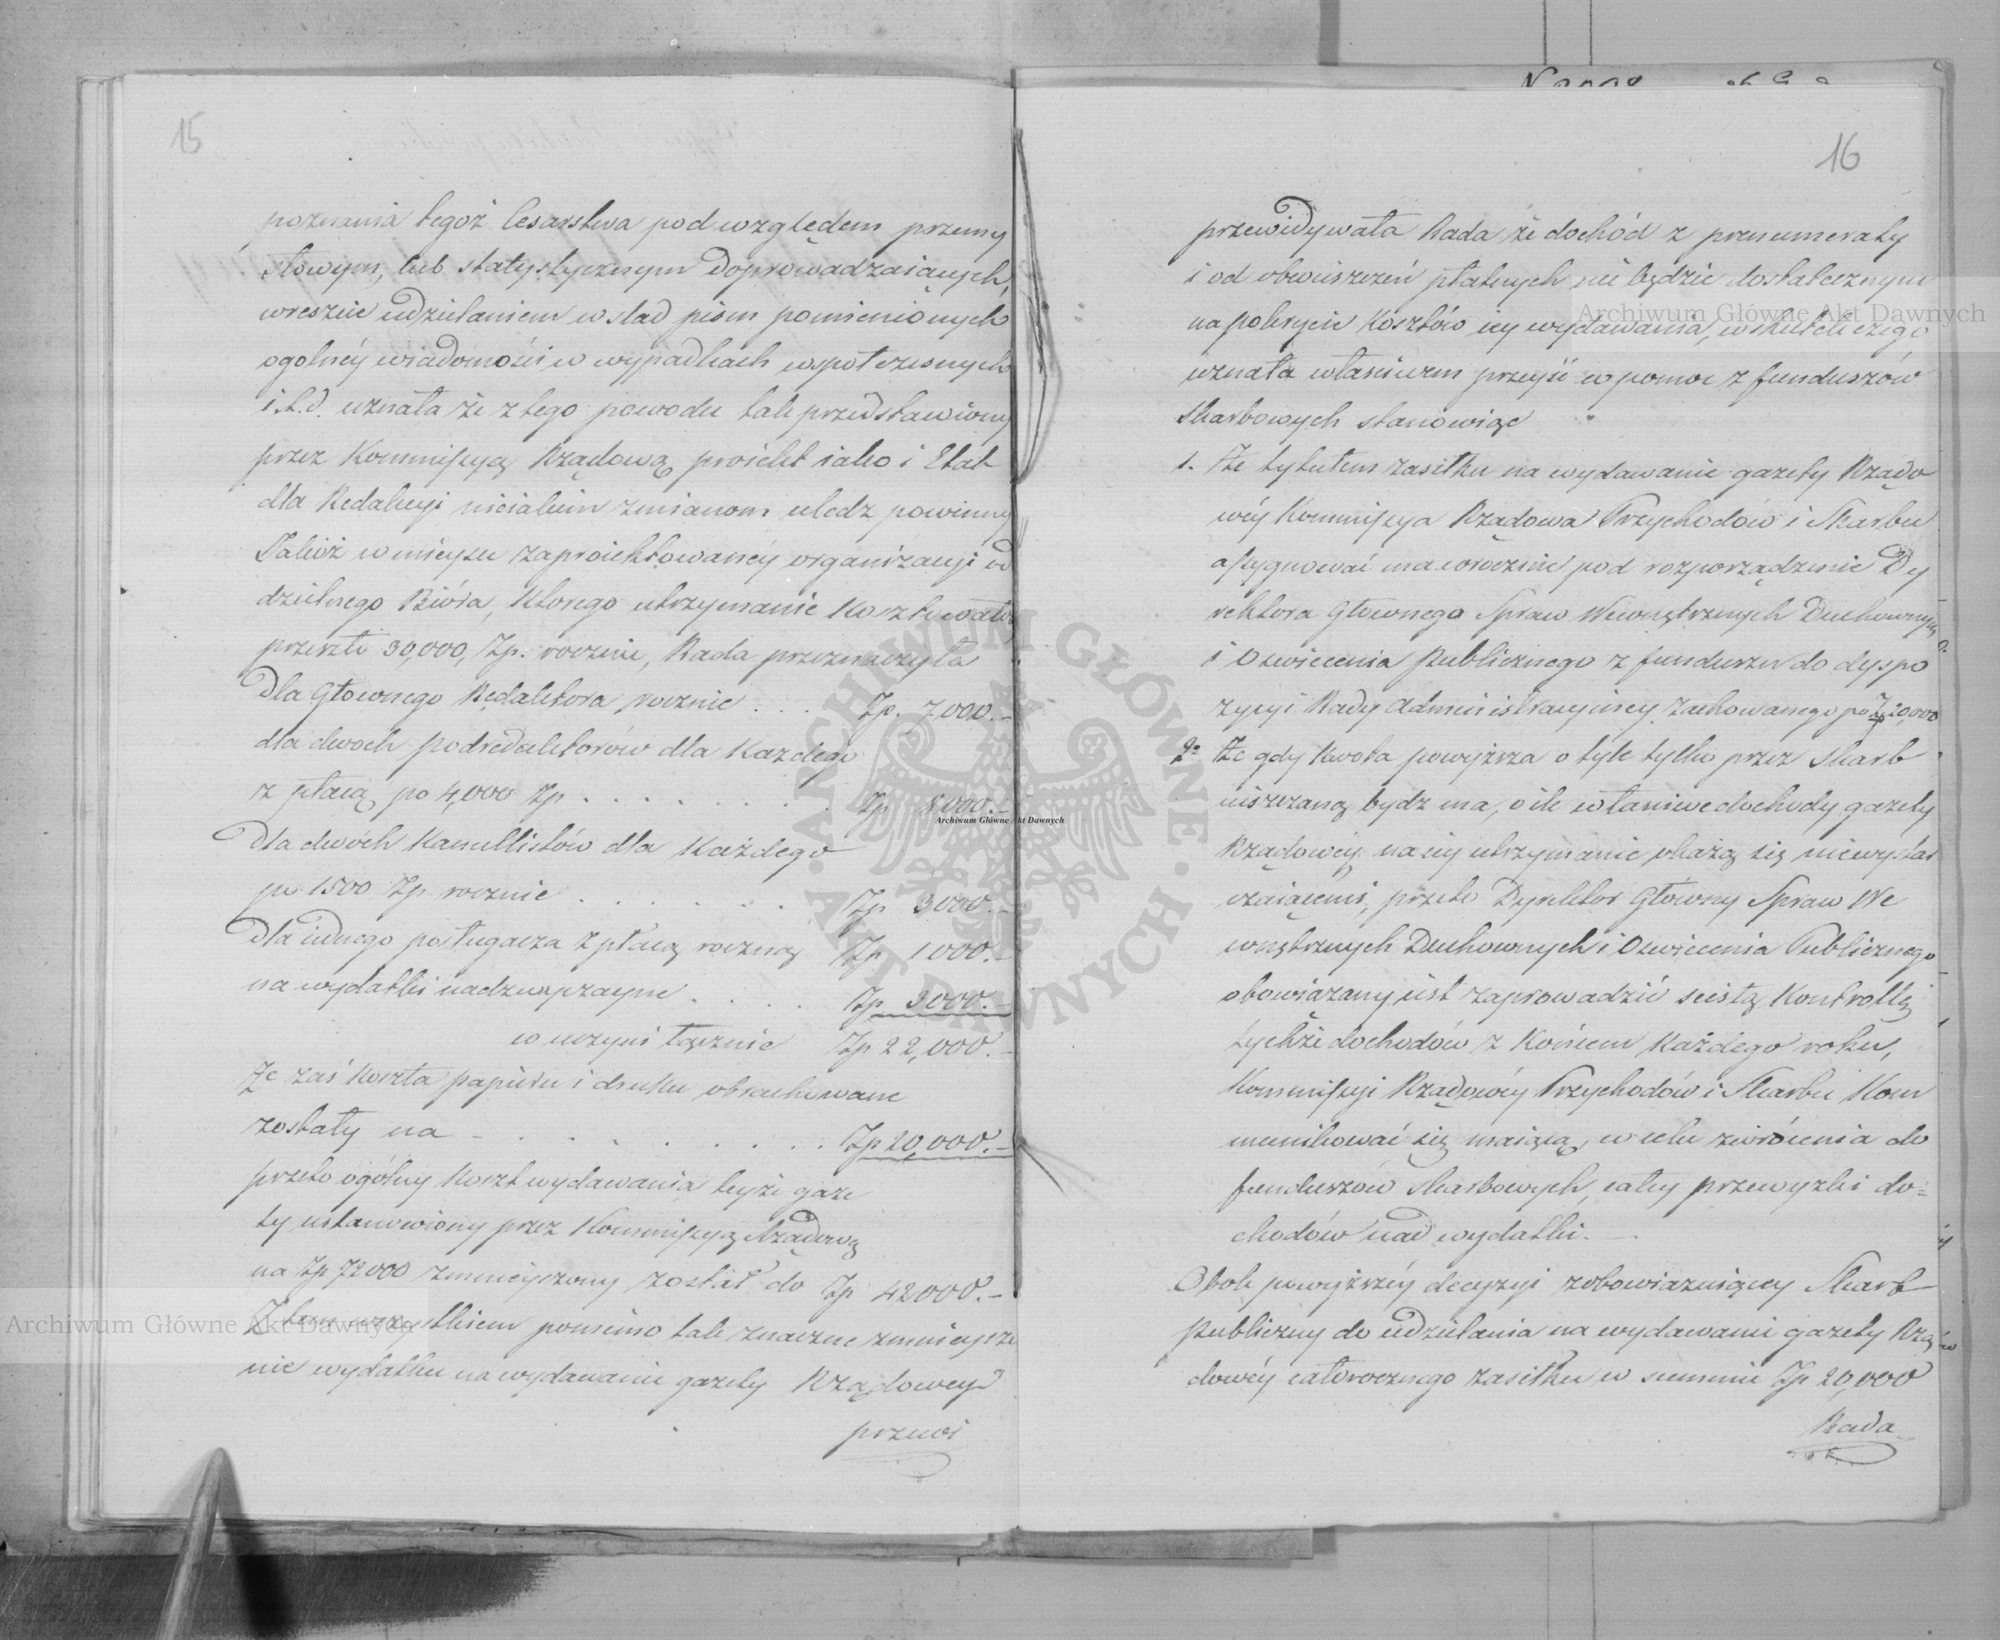 15
poznania tegoż Cesarstwa pod względem przemy
słowym, lub statystycznym doprowadzaiących,
wreszcie udzielaniem w ślad pism pomienionych
ogolnéy wiadomości w wypadkach wspołczesnych
i t.d. uznała że z tego powodu tak przedstawiony
przez Kommissyą Rządową proiekt iako i Etat
dla Redakcyi nieiakim zmianom uledz powinny
Jakoż w mieyscu zaproiektowaney organizacyi od
dzielnego Bióra, ktorego utrzymanie kosztowało
przeszło 30,000, Zp. rocznie, Rada przeznaczyła
dla Głownego Redaktora rocznie . . . Zp. 7000.-
dla dwoch podredaktorów dla każdego
z płacą po 4,000 Zp . . . . . . . . Zp 8000.-
dla dwóch Kancellistów dla każdego
po 1500 Zp rocznie . . . . . . Zp 3000.-
dla iednego posługacza z płacą roczną Zp 1000.-
na wydatki nadzwyczayne . . . . Zp 3000.-
co uczyni łącznie Zp 22,000.-
Że zaś koszta papieru i druku obrachowane
zostały na - . . . . . . . . Zp 20,000.-
przeto ogólny koszt wydawania teyże gaze
ty ustanowiony przez Kommissyą Rządową
na Zp 72000 zmnieyszony został do Zp 42000.-
Z tem wszystkiem pomimo tak znaczne zmnieysze
nie wydatku na wydawanie gazety Rządowey
przewi
16
przewidywała Rada że dochód z prenumeraty
i od obwieszczeń płatnych nie będzie dostatecznym
na pokrycie kosztów iey wydawania, w skutek czego
uznała własciwem przeyść w pomoc z funduszów
Skarbowych stanowiąc
1. Że tytułem zasiłku na wydawanie gazety Rządo
wéy Kommissya Rządowa Przychodów i Skarbu
assygnować ma corocznie pod rozporządzenie Dy
rektora Głownego Spraw Wewnętrznych Duchownych
i Oświecenia Publicznego z funduszu do dyspo
zycyi Rady Administracyiney zachowanego po Zp 20,000
2º Że gdy kwota powyższa o tyle tylko przez Skarb
uiszczaną bydz ma, o ile właściwe dochody gazety
Rządowéy na iey utrzymanie okażą się niewystar
czaiącemi, przeto Dyrektor Główny Spraw We
wnętrznych Duchownych i Oświecenia Publicznego
obowiązany iest zaprowadzić scisłą kontrollę
tychże dochodów z końcem każdego roku,
Kommissyi Rządowéy Przychodów i Skarbu kom
munikować się maiącą, w celu zwrócenia do
funduszow Skarbowych, całey przewyzki do=
chodów nad wydatki. -
Obok powyższéy decyzyi zobowiązuiącey Skarb
Publiczny do udzielania na wydawanie gazety Rzą
dowéy całorocznego zasiłku w summie Zp 20,000
Rada
Archiwum Główne Akt Dawnych
Archiwum Główne Akt Dawnych
Archiwum Główne Akt Dawnych
ARCHIWUM GŁÓWNE · AKT DAWNYCH ·